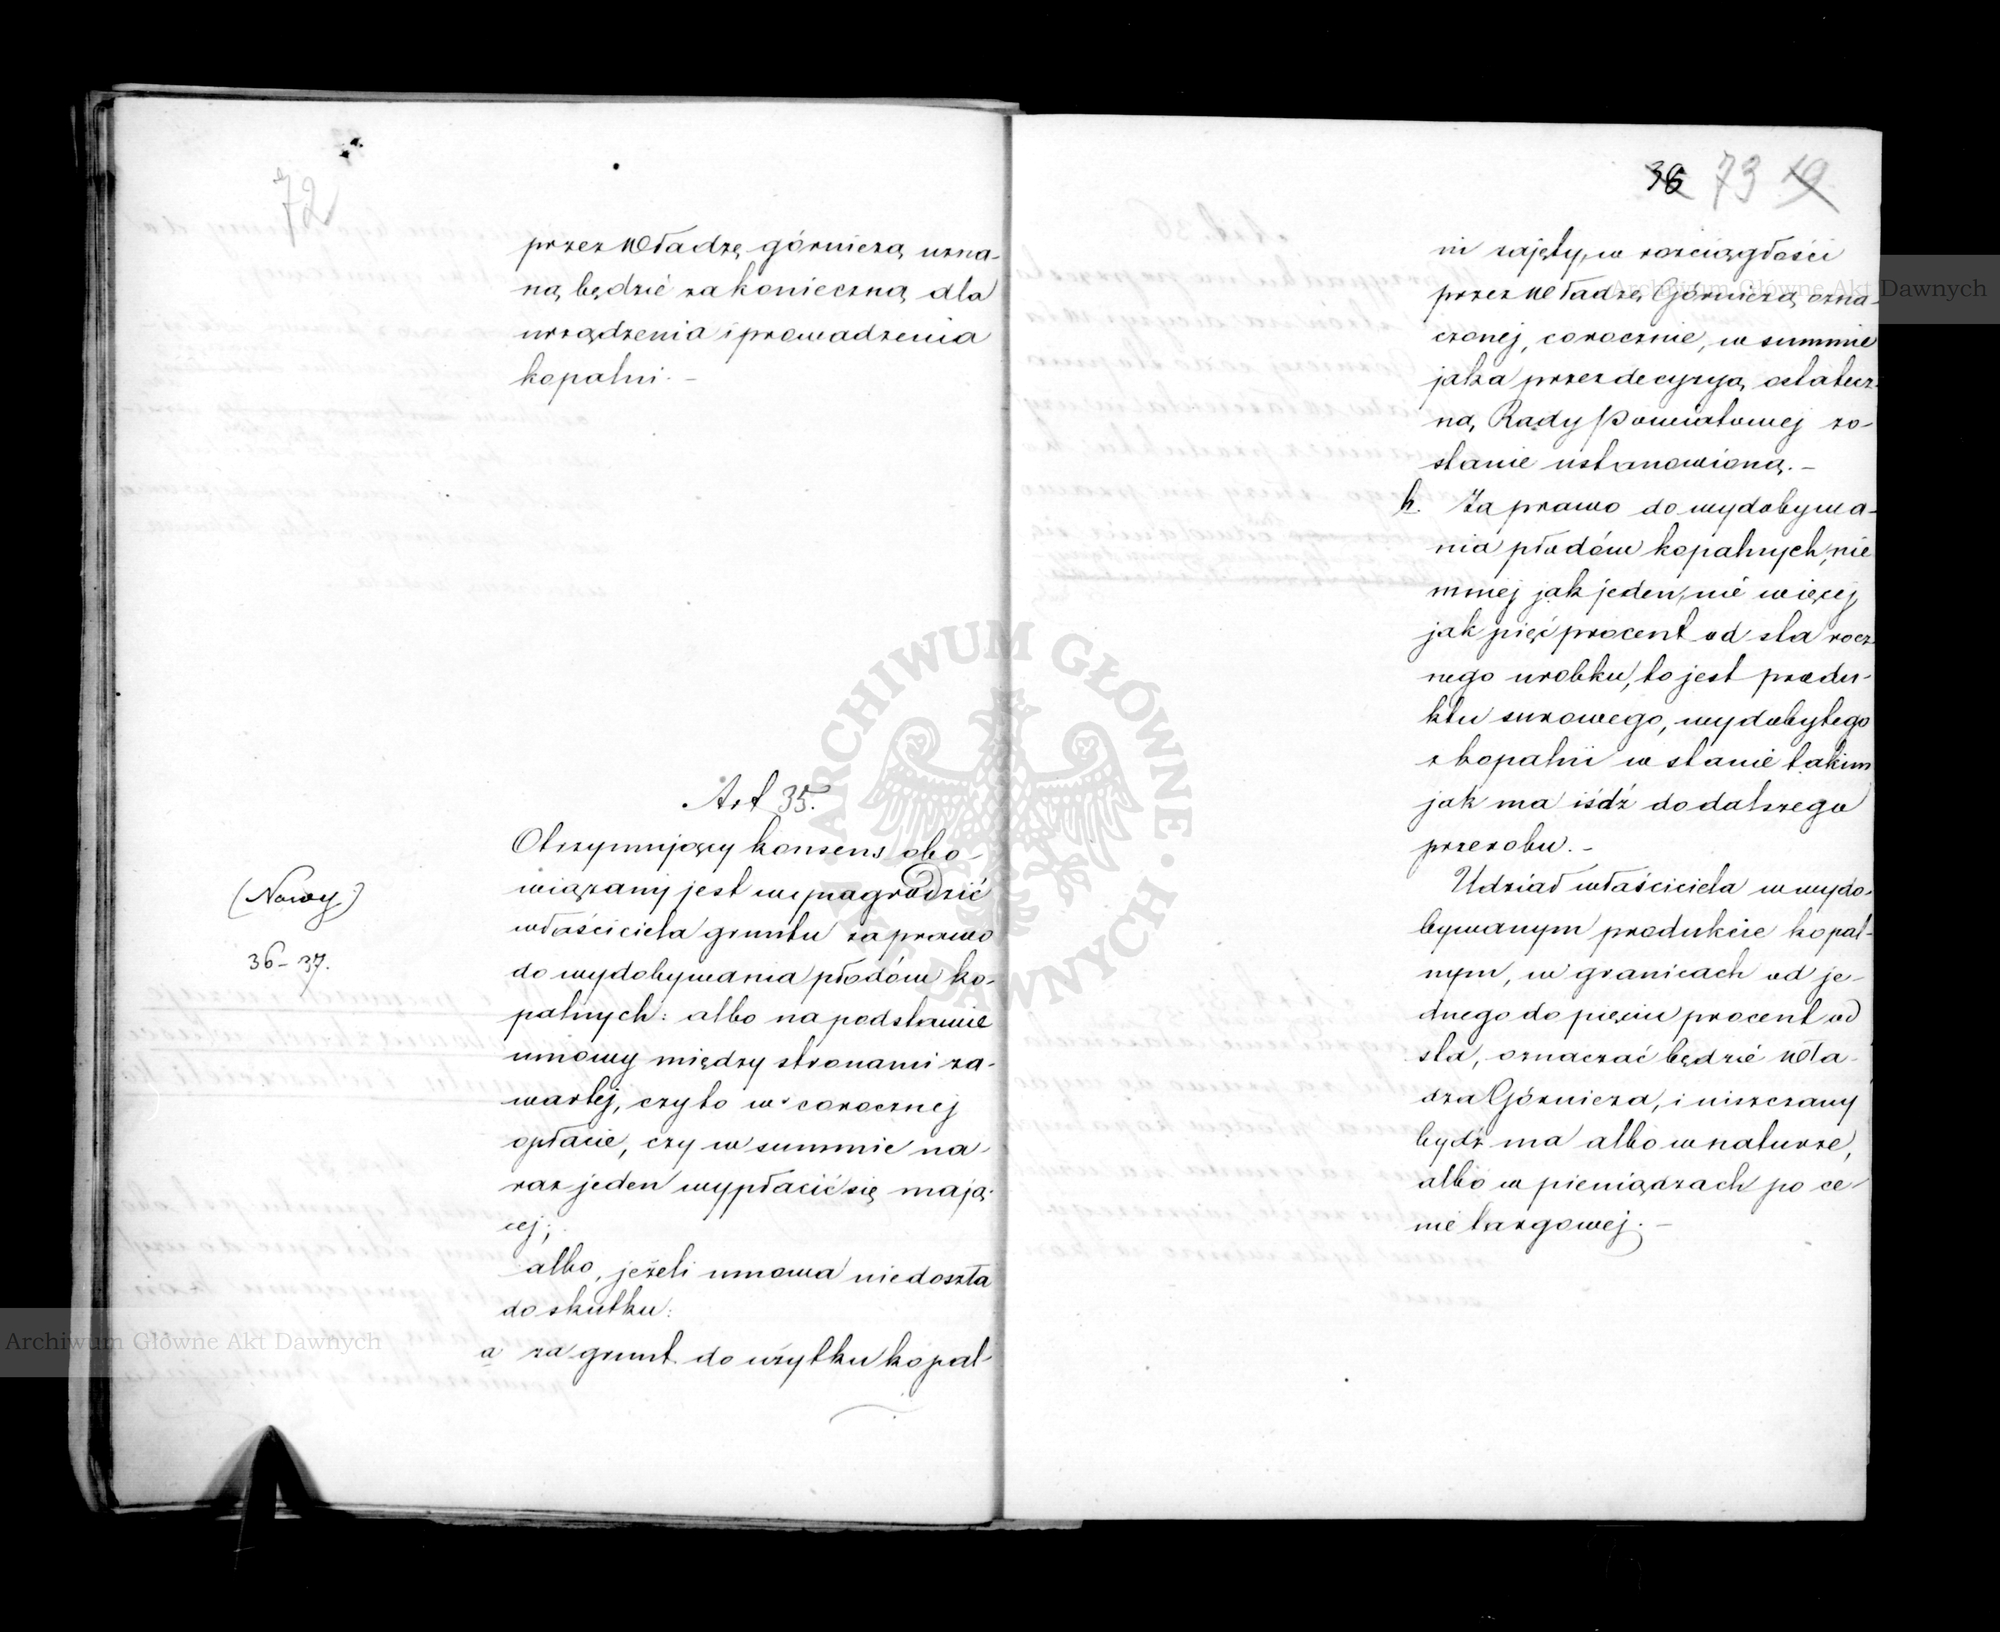 72
przez Władzę górniczą uzna-
ną będzie za konieczną dla
urządzenia i prowadzenia
kopalni. –
Art 35.
(Nowy)
36–37.
Otrzymujący konsens obo-
wiązany jest wynagrodzić
właściciela gruntu za prawo
do wydobywania płodów ko-
palnych: albo na podstawie
umowy między stronami za-
wartej, czyto w corocznej
opłacie, czy w summie na-
raz jeden wypłacić się mają-
cej;
albo, jeżeli umowa niedoszła
do skutku:
a za grunt do użytku kopal-
36 73 19
ni zajęty, w rozciągłości
przez Władzę Górniczą ozna-
czonej, corocznie, w summie
jaka przez decyzyą ostatecz-
ną Rady Powiatowej zo-
stanie ustanowioną. –
b. Za prawo do wydobywa-
nia płodów kopalnych, nie
mniej jak jeden, nie więcej
jak pięć procent od sta rocz-
nego urobku, to jest produ-
ktu surowego, wydobytego
z kopalni w stanie takim
jak ma iśdź do dalszego
przerobu. –
Udział właściciela w wydo-
bywanym produkcie kopal-
nym, w granicach od je-
dnego do pięciu procent od
sta, oznaczać będzie Wła-
dza Górnicza, i uiszczany
bydź ma albo w naturze,
albo w pieniądzach po ce-
nie targowej. –
ARCHIWUM GŁÓWNE AKT DAWNYCH
Archiwum Główne Akt Dawnych
Archiwum Główne Akt Dawnych